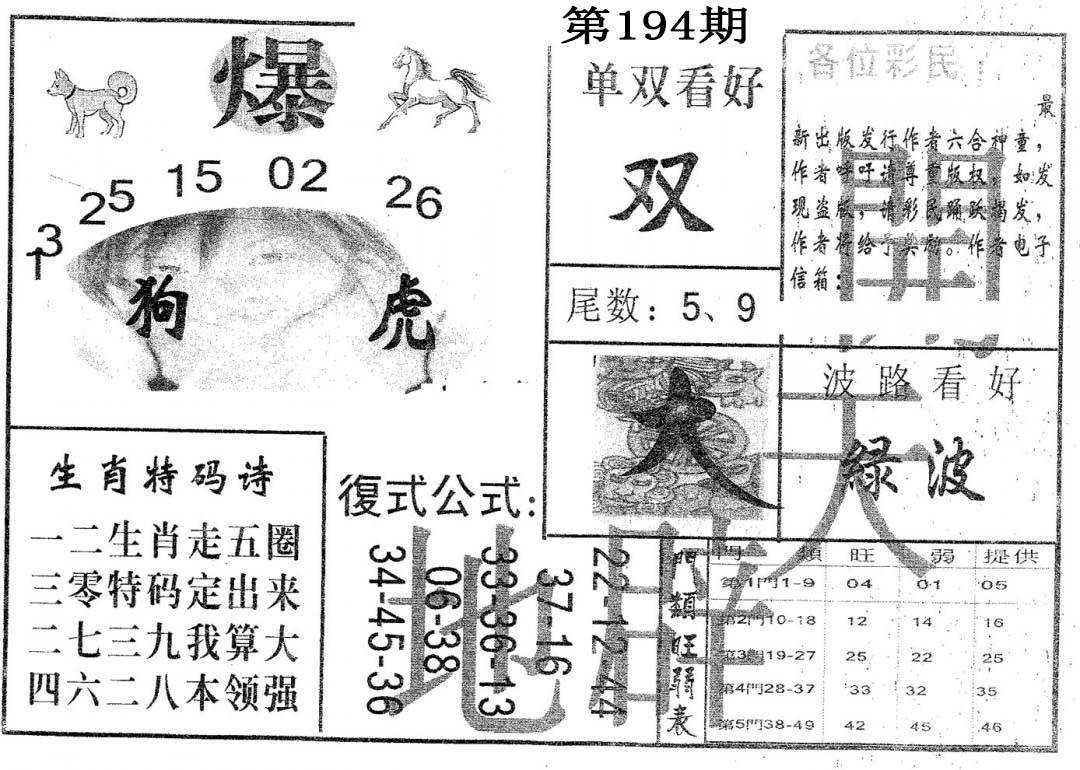 第194期
爆
13 25 15 02 26
狗 虎
生肖特码诗
一二生肖走五圈
三零特码定出来
二七三九我算大
四六二八本领强
復式公式:
34-45-36
06-38
33-36-13
37-16
22-12-44
单双看好
双
尾数：5、9
大
各位彩民：
最
新出版发行作者六合神童，
作者呼吁请尊重版权，如发
现盗版，请彩民踊跃揭发，
作者将给予奖励。作者电子
信箱：
波路看好
綠波
門類旺弱表
門類 旺 弱 提供
第1門1-9 04 01 05
第2門10-18 12 14 16
第3門19-27 25 22 25
第4門28-37 33 32 35
第5門38-49 42 45 46
天
地